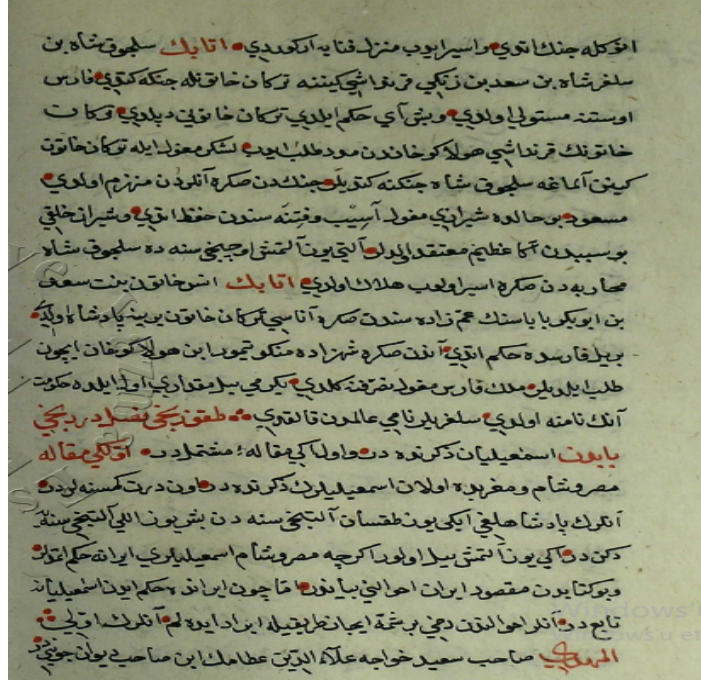 انوكله جنك اتدي و اسير ايوب منزل فنايه اوكوردي اتابك سلجوق شاه بن
سلغر شاه بن سعد بن زنكي قرنداشي كيننه تركان خاتونله جنكه كتدي فارس
اوستنه مستولي اولدي و بش آي حكم ايلدي تركان خاتوني دپلدي تركان
خاتونك قرنداشي هولاكو خاندن مدد طلب ايوب لشكر مغول ايله تركان خاتون
كينن آلماغه سلجوق شاه جنكنه كتديلر جنكدن صكره آنلردن منهزم اولدي
مسعود بو حالده شيرازي مغول آسيب و فتنه سندن حفظ اتدي و شيراز خلقي
بو سببدن آكا عظيم معتقد اولدلر آلتي يوز آلتمش اوچنجي سنه ده سلجوق شاه
محاربه دن صكره اسير اولوب هلاك اولدي اتابك انش خاتون بنت سعد
بن ابوبكر بابا سنك عم زاده سندن صكره آناسي تركان خاتون يرينه پادشاه اولدي
بر ييل فارسده حكم اتدي آندن صكره شهزاده منكو تيمور ابن هولاكو خان ايچون
طلب ايلديلر ملك فارس مغول تصرفنه كلدي يكرمي ييل مقداري اول ايلده حكومت
آنك نامنه اولدي سلغريلر نامي عالمدن قالقدي طقوزنجي فصل دردنجي
بابدن اسمعيليان ذكرنده در و اول ايكي مقاله يه مشتملدر اولكي مقاله
مصر و شام و مغربده اولان اسمعيليلرك ذكرنده در اون درت كمسنه لردر
آنلرك پادشاهلغي ايكي يوز طقسان آلتنجي سنه دن بش يوز اللي آلتنجي سنه يه
دكندر ايكي يوز آلتمش ييل اولور اكرچه مصر و شام اسمعيليلري ايرانه حكم اتمديلر
و بو كتابدن مقصود ايران احوالني بياندر اما چون ايرانده حكم ايدن اسمعيليان
تابعدر آنلر احوالندن دخي بر شمه ايجاز طريقيله ايراد ايده لم آنلرك اولي
المهدي صاحب سعيد خواجه علاء الدين عطا ملك ابن صاحب ديوان جويني